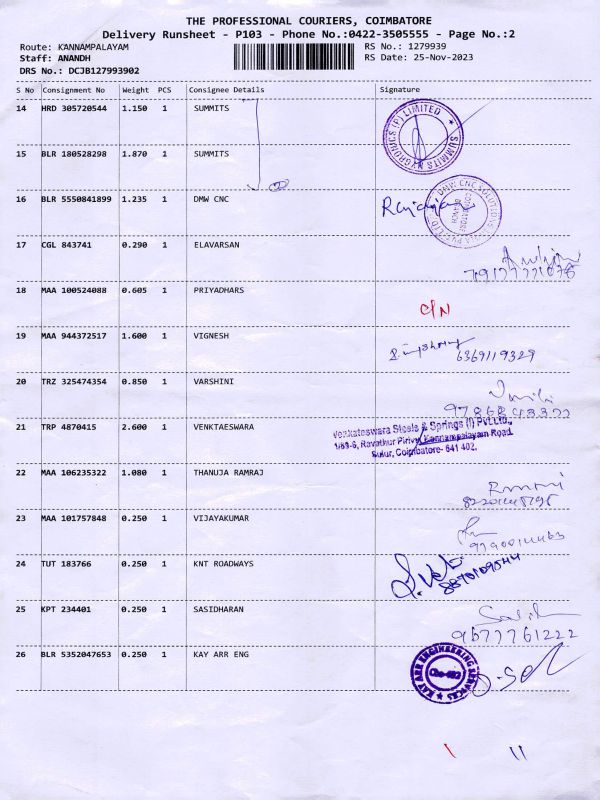 THE PROFESSIONAL COURIERS, COIMBATORE
Delivery Runsheet - P103 - Phone No.:0422-3505555 - Page No.:2
Route: KANNAMPALAYAM RS No.: 1279939
Staff: ANANDH RS Date: 25-Nov-2023
DRS No.: DCJB127993902
S No Consignment No Weight PCS Consignee Details Signature
14 HRD 305720544 1.150 1 SUMMITS
SUMMITS HYGRONICS (P) LIMITED
15 BLR 180528298 1.870 1 SUMMITS
16 BLR 5550841899 1.235 1 DMW CNC
DMW CNC SOLUTIONS INDIA PVT LTD
COIMBATORE BRANCH
17 CGL 843741 0.290 1 ELAVARSAN
18 MAA 100524088 0.605 1 PRIYADHARS C/N
19 MAA 944372517 1.600 1 VIGNESH 6369119329
20 TRZ 325474354 0.850 1 VARSHINI
21 TRP 4870415 2.600 1 VENKTAESWARA
Venkateswara Steels & Springs (I) PVT.LTD.,
1/89-6, Ravathur Pirivu, Kannampalayam Road,
Sulur, Coimbatore- 641 402.
22 MAA 106235322 1.080 1 THANUJA RAMRAJ
23 MAA 101757848 0.250 1 VIJAYAKUMAR
24 TUT 183766 0.250 1 KNT ROADWAYS 8870109544
25 KPT 234401 0.250 1 SASIDHARAN
9677761222
26 BLR 5352047653 0.250 1 KAY ARR ENG
KAY ARR ENGINEERING SERVICES